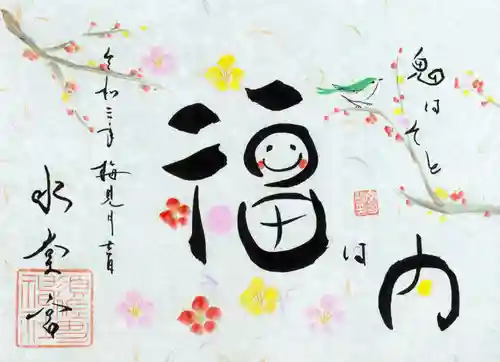 鬼はそと
福は
内
令和三年 梅見月 吉日